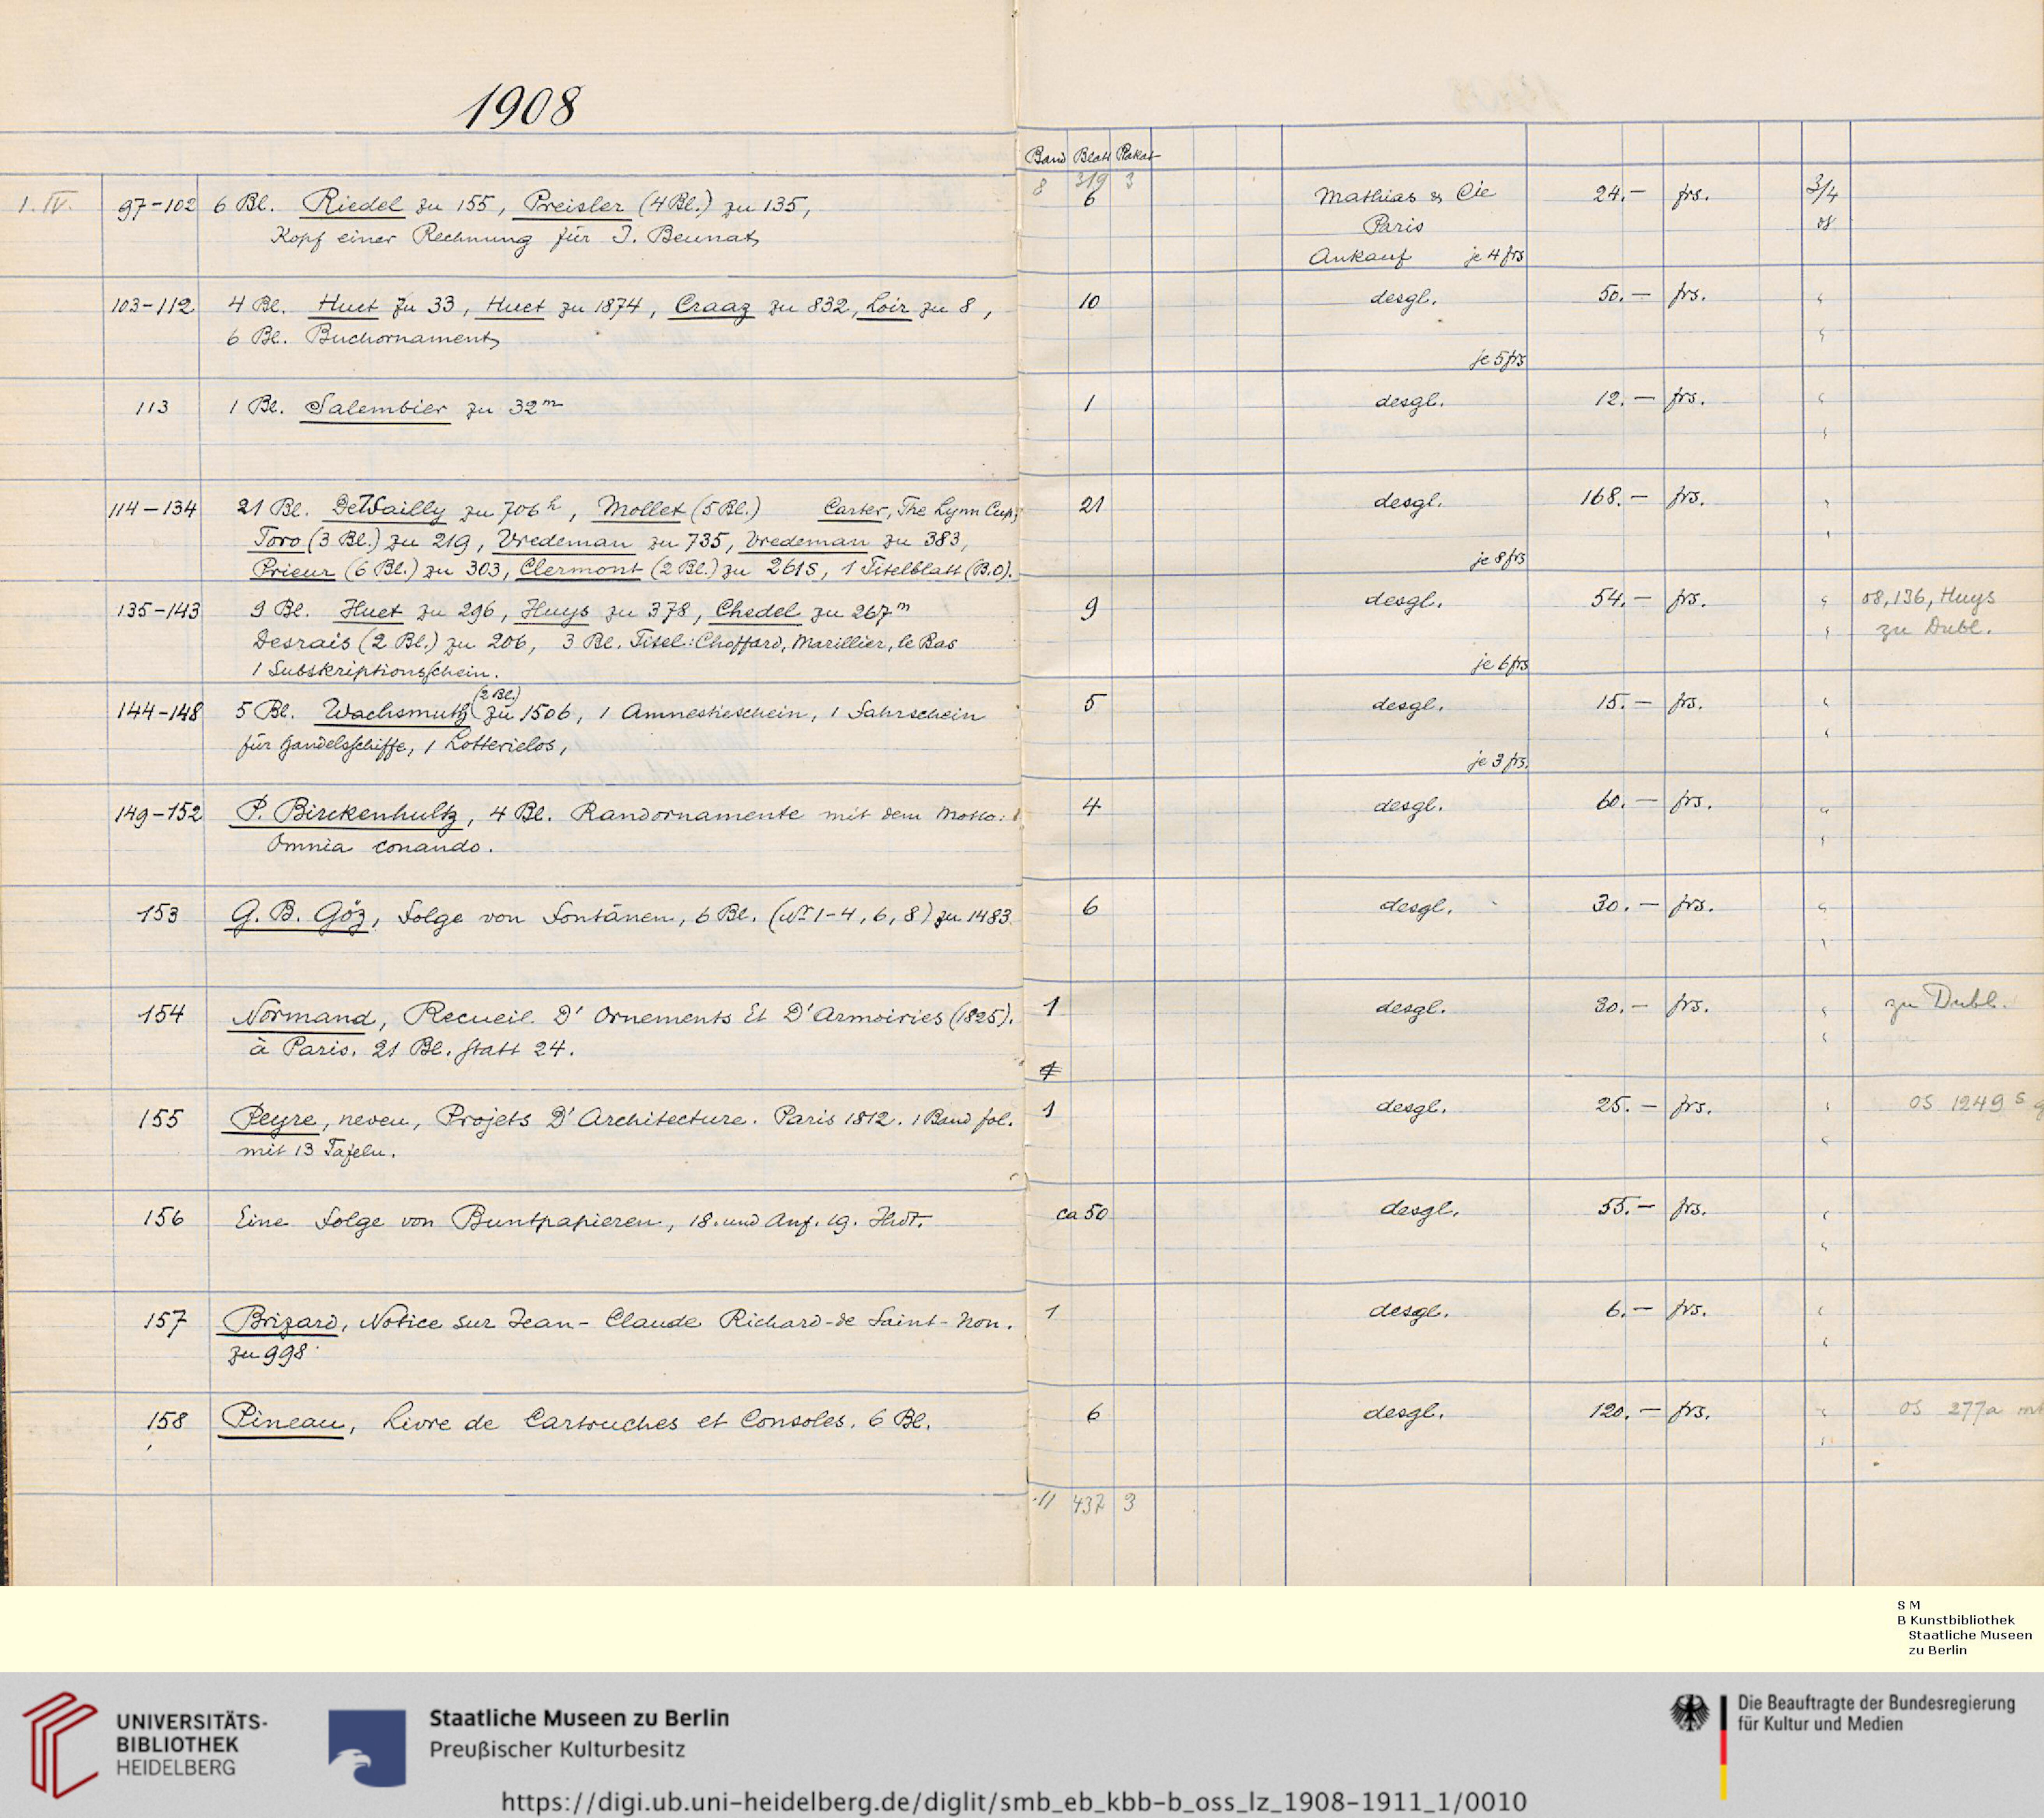 1908
Band Blatt Plakat
8 319 3
1. IV. 97-102 6 Bl. Riedel zu 155, Preisler (4 Bl.) zu 135, 6 Mathias & Cie 24.— frs. 3/4
Kopf einer Rechnung für J. Beunat, Paris 08
Ankauf je 4 frs
103-112 4 Bl. Huet zu 33, Huet zu 1874, Craaz zu 832, Loir zu 8, 10 desgl. 50.— frs. "
6 Bl. Buchornament, "
je 5 frs
113 1 Bl. Salembier zu 32m 1 desgl. 12.— frs. "
"
114-134 21 Bl. DeWailly zu 706h, Mollet (5 Bl.) Carter, The Lynn Cup, 21 desgl. 168.— frs. "
Toro (3 Bl.) zu 219, Vredeman zu 735, Vredeman zu 383, "
Prieur (6 Bl.) zu 303, Clermont (2 Bl.) zu 261S, 1 Titelblatt (B.O). je 8 frs
135-143 9 Bl. Huet zu 296, Huys zu 378, Chedel zu 267m 9 desgl. 54.— frs. " 08,136, Huys
Desrais (2 Bl.) zu 206, 3 Bl. Titel: Choffard, Marillier, le Bas " zu Dubl.
1 Subskriptionsschein. je 6 frs
(2 Bl.)
144-148 5 Bl. Wachsmuth zu 1506, 1 Amnestieschein, 1 Fahrschein 5 desgl. 15.— frs. "
für Handelsschiffe, 1 Lotterielos, "
je 3 frs.
149-152 P. Birckenhultz, 4 Bl. Randornamente mit dem Motto: 4 desgl. 60.— frs. "
Omnia conando. "
153 G. B. Göz, Folge von Fontänen, 6 Bl. (Nr 1-4, 6, 8) zu 1483 6 desgl. 30.— frs. "
"
154 Normand, Recueil D' Ornements Et D'Armoiries (1825). 1 desgl. 30.— frs. " zu Dubl.
à Paris. 21 Bl. statt 24. "
1
155 Peyre, neveu, Projets D'Architecture. Paris 1812. 1 Band fol. 1 desgl. 25.— frs. " OS 1249 s
mit 13 Tafeln. "
156 Eine Folge von Buntpapieren, 18. und Anf. 19. Jhdt. ca 50 desgl. 55.— frs. "
"
157 Brizard, Notice sur Jean-Claude Richard-de Saint-Non. 1 desgl. 6.— frs. "
zu 998 "
158 Pineau, Livre de Cartouches et Consoles. 6 Bl. 6 desgl. 120.— frs. " OS 277a
"
11 437 3
S M
B Kunstbibliothek
Staatliche Museen
zu Berlin
UNIVERSITÄTS-
BIBLIOTHEK
HEIDELBERG
Staatliche Museen zu Berlin
Preußischer Kulturbesitz
Die Beauftragte der Bundesregierung
für Kultur und Medien
https://digi.ub.uni-heidelberg.de/diglit/smb_eb_kbb-b_oss_lz_1908-1911_1/0010